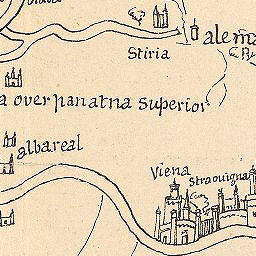 alem̃a
Stiria
a over panatna superior
albareal
Viena
Straouigna